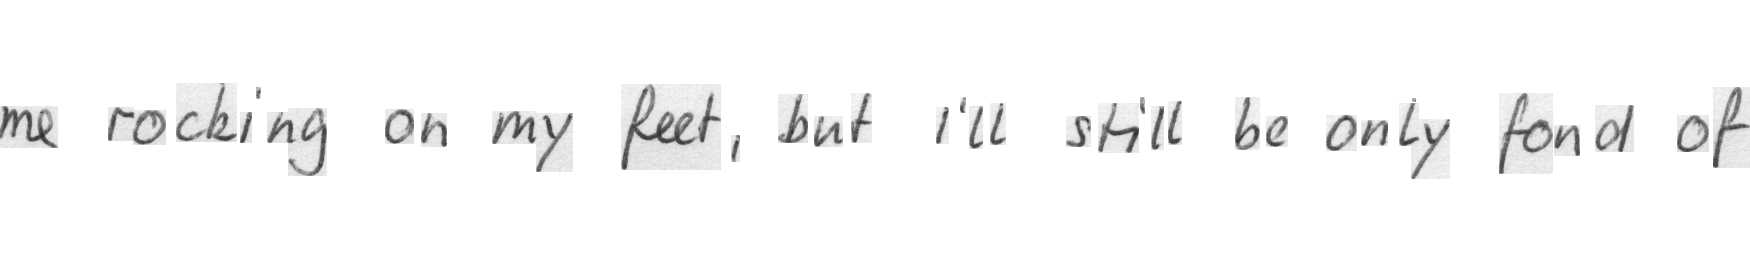 me rocking on my feet, but i'll still be only fond of